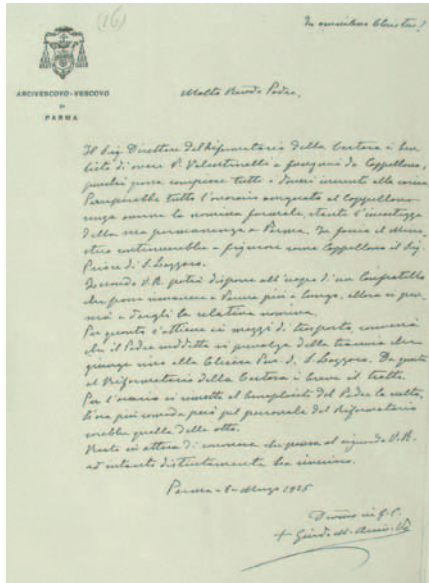 (16)
In omnibus Christus!
ARCIVESCOVO-VESCOVO
DI
PARMA
Molto Revdo Padre,
Il Sig. Direttore del Riformatorio della Certosa è ben
lieto di avere P. Valentinelli a fungervi da Cappellano,
purché possa compiere tutto i doveri inerenti alla carica.
Percepirebbe tutto l'onorario assegnato al Cappellano
senza averne la nomina formale, stante l'incertezza
della sua permanenza a Parma. In faccia al Mini-
stero continuerebbe a figurare come Cappellano il Sig.
Priore di S. Lazzaro.
Quando V. R. potrà disporre all'uopo di un Confratello
che possa rimanere a Parma più a lungo, allora si pen-
serà a dargli la relativa nomina.
Per quanto s'attiene ai mezzi di trasporto, converrà
che il Padre suddetto si prevalga della tramvia che
giunge sino alla Chiesa Parr. di S. Lazzaro. Da questa
al Riformatorio della Certosa è breve il tratto.
Per l'orario si rimette al beneplacito del Padre la scelta,
l'ora più comoda però pel personale del Riformatorio
sarebbe quella delle otto.
Resto in attesa di conoscere che pensa al riguardo V. R.
ed intanto distintamente La riverisco.
Parma - 8 - Marzo 1925
Devmo in G. C.
+ Guido M. Arciv. Vo